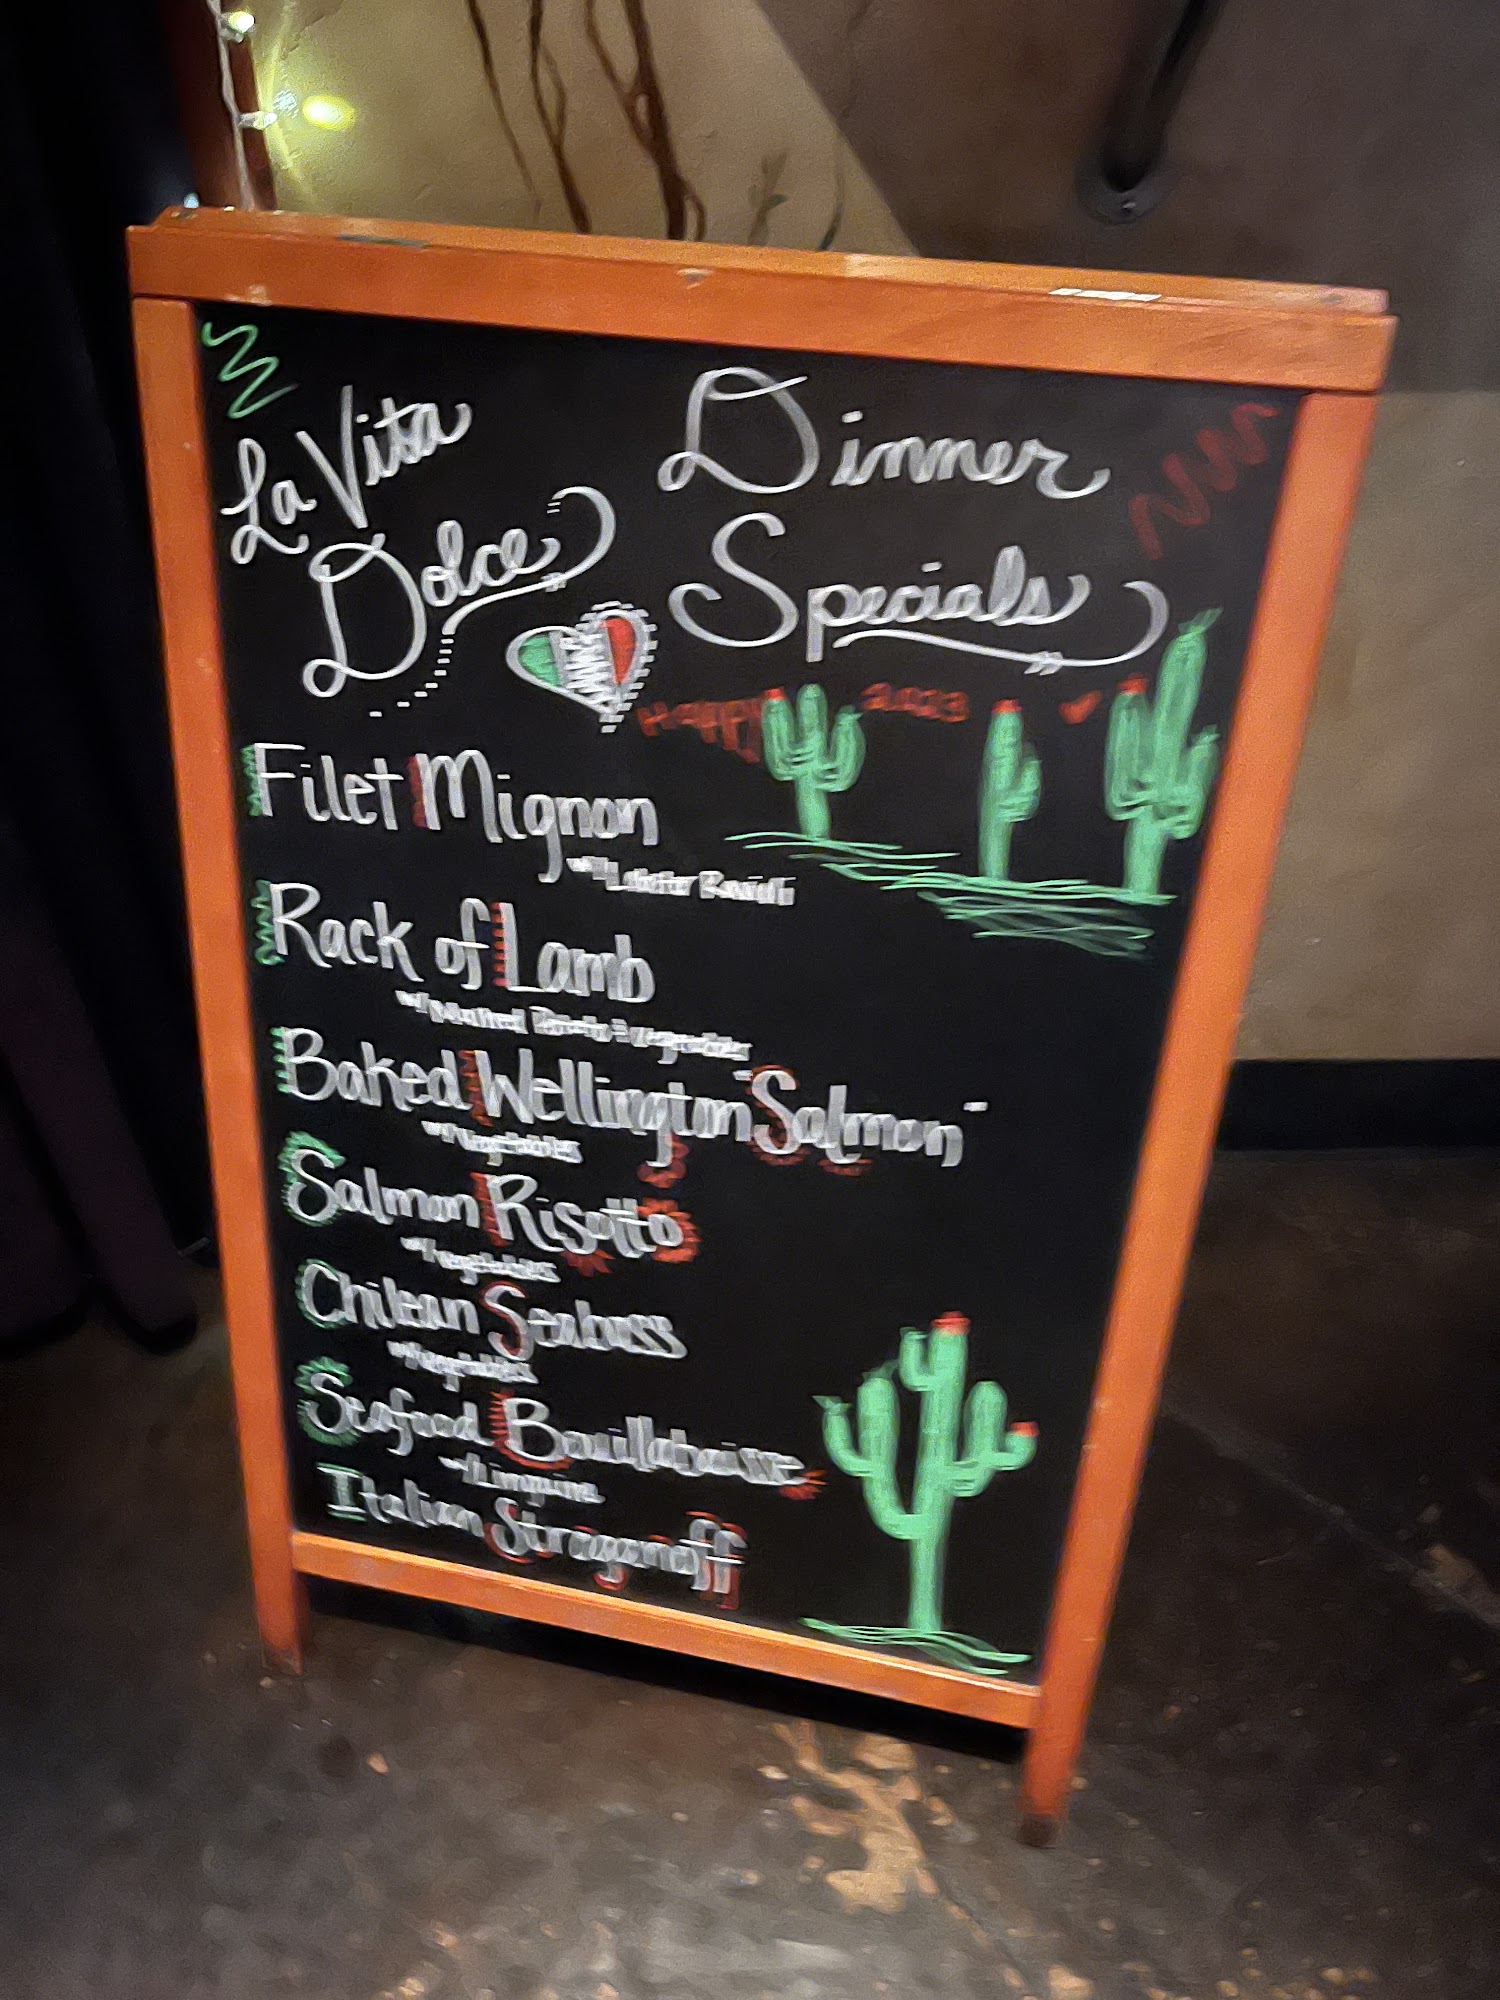 La Vita
Dolce
Dinner
Specials
Happy 2023
Filet Mignon
w/ Lobster Ravioli
Rack of Lamb
w/ Mashed Potato & vegetables
Baked Wellington "Salmon"
w/ vegetables
Salmon Risotto
w/ vegetables
Chilean Seabass
w/ vegetables
Seafood Bouillabaisse
w/ Linguine
Italian Strogonoff